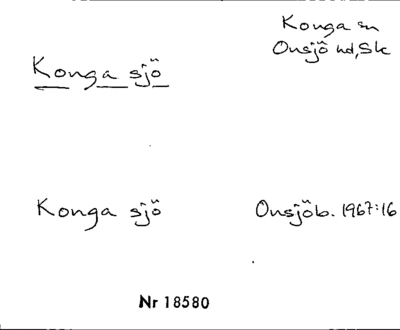 Konga sn
Onsjö hd, Sk
Konga sjö
Konga sjö
Onsjöb. 1967:16
Nr 18580